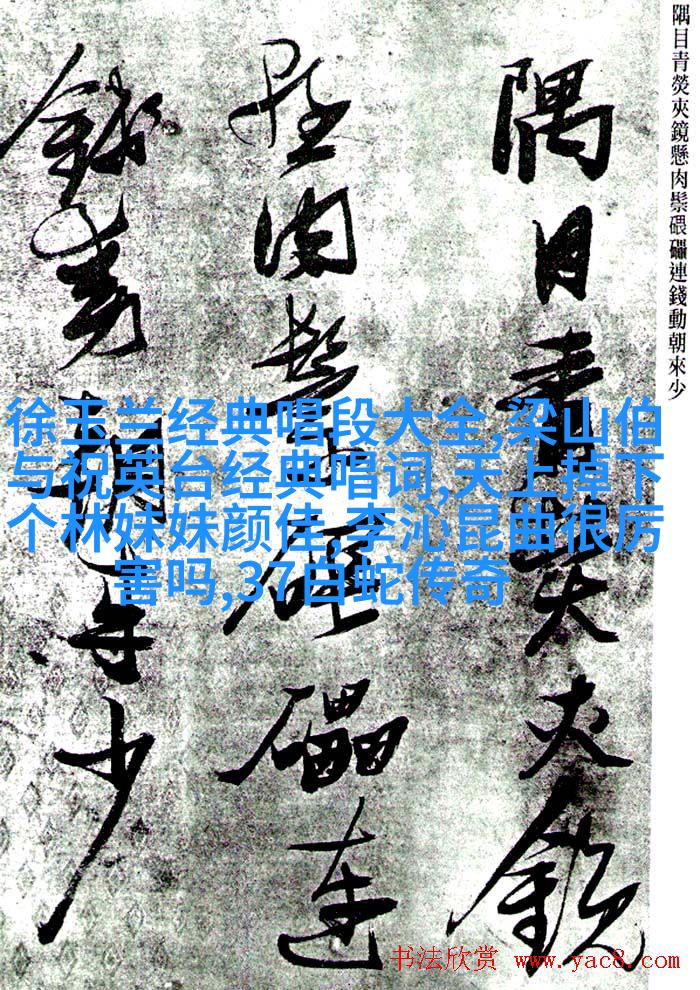 隅目青熒夾鏡懸肉鬃碨礧連錢動朝來少
隅目青熒夾鏡
懸肉鬃碨礧連
錢動朝來少
徐玉兰经典唱段大全,梁山伯
与祝英台经典唱词,天上掉下
个林妹妹颜佳,李沁昆曲很厉
害吗,37白蛇传奇
书法欣赏 www.yac8.com